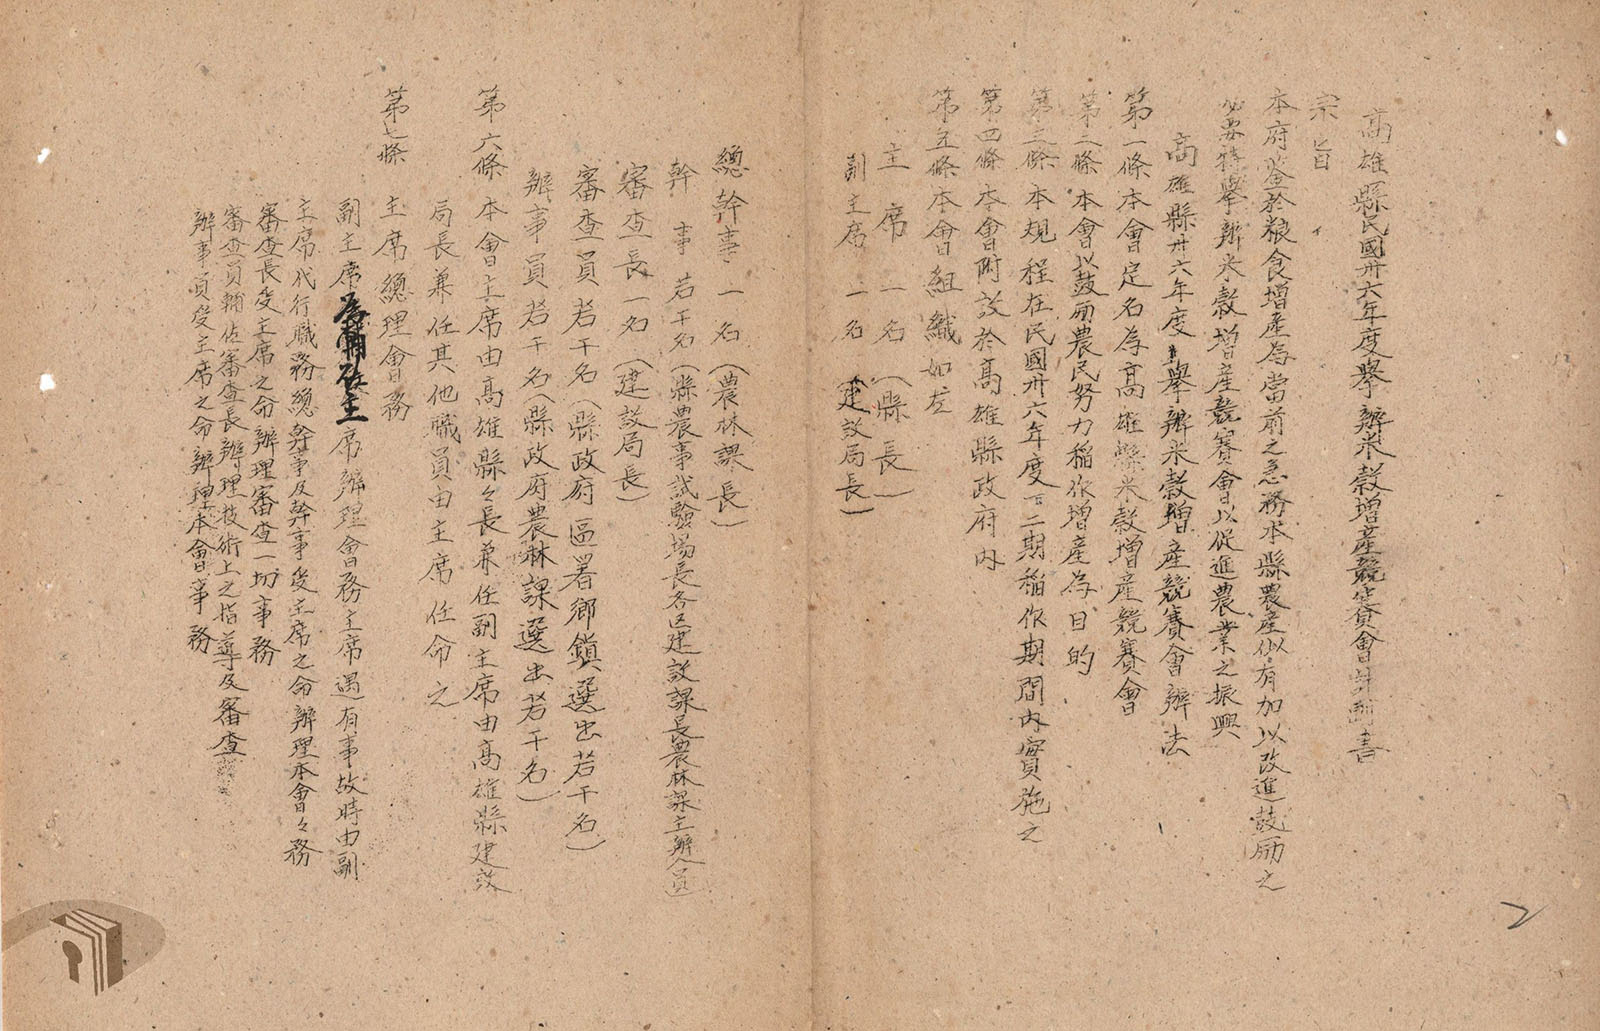 高雄縣民國卅六年度舉辦米穀增產競賽會計劃書
宗旨
本府鑒於粮食增產為當前之急務本縣農產似有加以改進鼓励之
必要特舉辦米穀增產競賽會以促進農業之振興
高雄縣卅六年度舉辦米穀增產競賽會辦法
第一條本會定名為高雄縣米穀增產競賽會
第二條本會以鼓励農民努力稻作增產為目的
第三條本規程在民國卅六年度二期稻作期間內實施之
第四條本會附設於高雄縣政府內
第五條本會組織如左
主席一名(縣長)
副主席一名(建設局長)
總幹事一名(農林課長)
幹事若干名(縣農事試驗場長各区建設課長農林課主辦人員)
審查長一名(建設局長)
審查員若干名(縣政府區署鄉鎮選出若干名)
辦事員若干名(縣政府農林課選出若干名)
第六條本會主席由高雄縣々長兼任副主席由高雄縣建設
局長兼任其他職員由主席任命之
第七條主席總理會務
副主席席辦理會務主席遇有事故時由副
主席代行職務總幹事及幹事受主席之命辦理本會々務
審查長受主席之命辦理審查一切事務
審查員輔佐審查長辦理技術上之指導及審查
辦事員受主席之命辦理本會事務
2